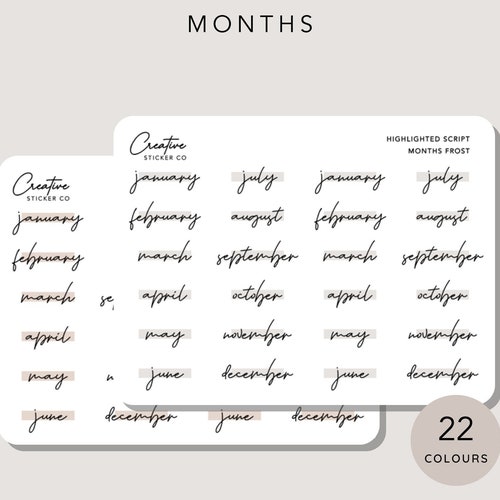 MONTHS
Creative
STICKER CO
HIGHLIGHTED SCRIPT
MONTHS FROST
january july january july
february august february august
march september march september
april october april october
may november may november
june december june december
Creative
STICKER CO
january
february
march
april
may
june december june december
22
COLOURS